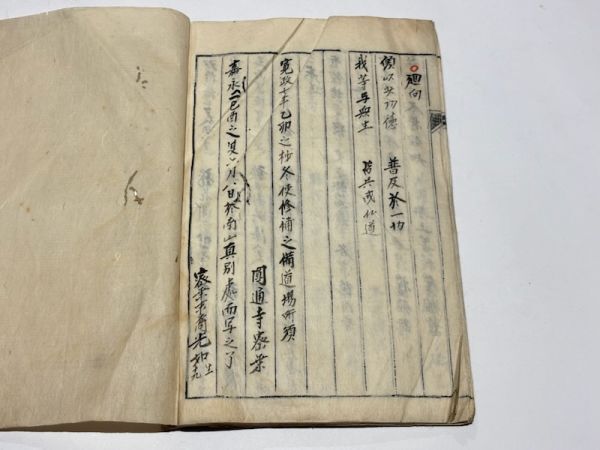 廻向
願以此功徳　普及於一切
我等与衆生　皆共成仏道
寛政七年乙卯之秒冬使修補之備道場所須
圓通寺密業
嘉永二己酉之夏六月八日於南山真別處而写之了
光如